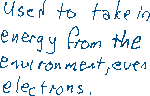 used to take in
energy from the
environment, even
electrons.